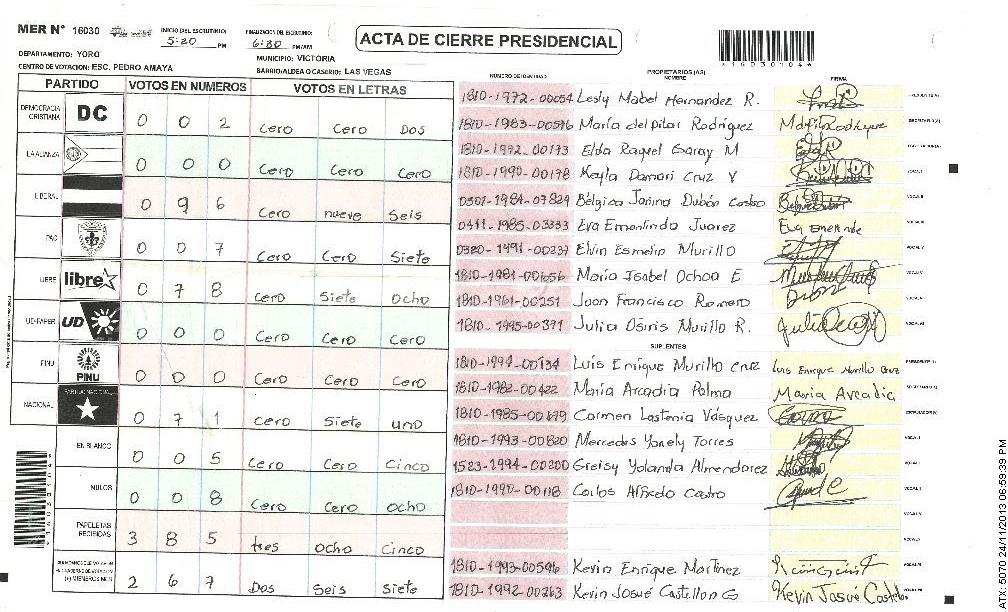 MER N° 16030
INICIO DEL ESCRUTINIO:
5:20 PM
FINALIZACION DEL ESCRUTINIO:
6:30 PM/AM
ACTA DE CIERRE PRESIDENCIAL
DEPARTAMENTO: YORO
MUNICIPIO: VICTORIA
CENTRO DE VOTACION: ESC. PEDRO AMAYA
BARRIO/ALDEA O CASERIO: LAS VEGAS
PARTIDO VOTOS EN NUMEROS VOTOS EN LETRAS
DEMOCRACIA CRISTIANA DC 0 0 2 cero cero Dos
LA ALIANZA 0 0 0 cero cero cero
LIBERAL 0 9 6 cero nueve seis
PAC 0 0 7 cero cero siete
LIBRE libre 0 7 8 cero siete ocho
UD-FAPER UD 0 0 0 cero cero cero
PINU PINU 0 0 0 cero cero cero
NACIONAL 0 7 1 cero siete uno
EN BLANCO 0 0 5 cero cero cinco
NULOS 0 0 8 cero cero ocho
PAPELETAS RECIBIDAS 3 8 5 tres ocho cinco
2 6 7 Dos seis siete
NUMERO DE IDENTIDAD PROPIETARIOS (AS) NOMBRE FIRMA
1810-1972-00054 Lesly Mabel Hernandez R.
1810-1983-00516 María del Pilar Rodríguez
1810-1992-00193 Elda Raquel Garay M
1810-1990-00178 Keyla Damari Cruz V
0301-1984-07829 Bélgica Janina Dubón Castro
0411-1985-03333 Eva Ernanlinda Juarez
0320-1991-00237 Elvin Esmelin Murillo
1810-1981-00656 María Isabel Ochoa E
1810-1961-00251 Juan Francisco Romero
1810-1995-00371 Julia Osiris Murillo R.
SUPLENTES
1810-1994-00134 Luis Enrique Murillo cruz Luis Enrique Murillo Cruz
1810-1982-00422 María Arcadia Palma Maria Arcadia
1810-1985-00679 Carmen Lastenia Vásquez
1810-1993-00820 Mercedes Yanely Torres
1523-1994-00200 Greisy Yolanda Almendarez
1810-1990-00118 Carlos Alfredo Castro
1810-1993-00596 Kevin Enrique Martínez
1810-1992-00263 Kevin Josué Castellon G Kevin Josué
ATX 5070 24/11/2013 06:59:39 PM